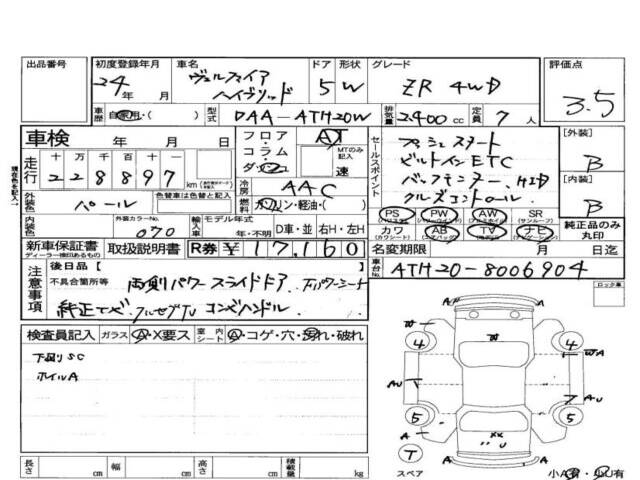 出品番号
初度登録年月
24年 月
車名
ヴェルファイア
ハイブリッド
ドア
5
形状
W
グレード
ZR 4WD
評価点
3.5
車歴
自家用・( )
型式
DAA-ATH20W
排気量
2,400 cc
定員
7 人
車検
年 月 日
フロア・コラム・ダッシュ
AT
MTのみ記入
速
セールスポイント
プッシュスタート
ビルトインETC
バックモニター、HID
クルーズコントロール
[外装]
B
[内装]
B
走行
十 万 千 百 十 一
2 2 8 8 9 7
km
冷房
AAC
外装色
パール
色替車は色替と記入
燃料
ガソリン・軽油・( )
PS
PW
AW
SR
(サンルーフ)
カワ
AB
TV
ナビ
純正品のみ丸印
内装色
外装カラーNo.
070
輸入車
モデル年式
年・不明
D車・並
右H・左H
新車保証書
ディーラー捺印あるもの
取扱説明書
R券 ¥17,160
名変期限
月 日迄
注意事項
後日品( )
不具合箇所等
両側パワースライドドア
パワーシート
純正ナビ フルセグTV コンビハンドル
車台No.
ATH20-8006904
ロック車
検査員記入
ガラス
A・X要ス
室内シート
A・コゲ・穴・汚れ・破れ
下回りSC
ホイルA
A
W
4
4
WA
AU
AU
5
5
A
A
U
T
スペア
小A有・小U有
長さ cm
幅 cm
高さ cm
積載量 kg